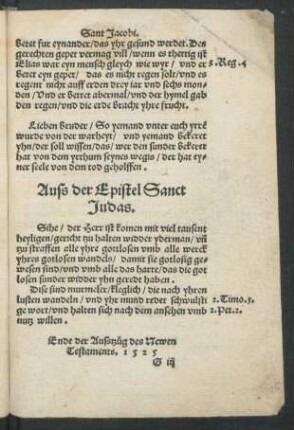 Sant Jacobi.
betet fur eynander/das yhr gesund werdet. Des
gerechten gepet vermag vill/wenn es thettig ist
Elias war eyn mensch gleych wie wyr/ vnd er 3. Reg. 4
betet eyn gepet/ das es nicht regen solt/vnd es
regent nicht auff erden drey iar vnd sechs mon-
den/Vnd er betet abermal/vnd der hymel gab
den regen/vnd die erde bracht yhr frucht.
Lieben bruder/ So yemand vnter euch yrre
wurde von der warheyt/ vnd yemand bekeret
yhn/der soll wissen/das/wer den sunder bekeret
hat von dem yrthum seynes wegis/ der hat ey-
ner seele von dem tod geholffen.
Auss der Epistel Sanct
Judas.
Sihe/ der Herr ist komen mit viel tausent
heyligen/gericht zu halten widder yderman/ vñ
zu straffen alle yhre gotlosen vmb alle werck
yhres gotlosen wandels/ damit sie gotlosig ge-
wesen sind/vnd vmb alle das harte/das die got
losen sunder widder yhn geredt haben.
Dise sind murmeler/kleglich/ die nach yhren
lusten wandeln/ vnd yhr mund redet schwulsti 2. Timo. 3.
ge wort/vnd halten sich nach dem ansehen vmb 2. Pet. 2.
nutz willen.
Ende der Ausszüg des Newen
Testaments. 1525
G iij